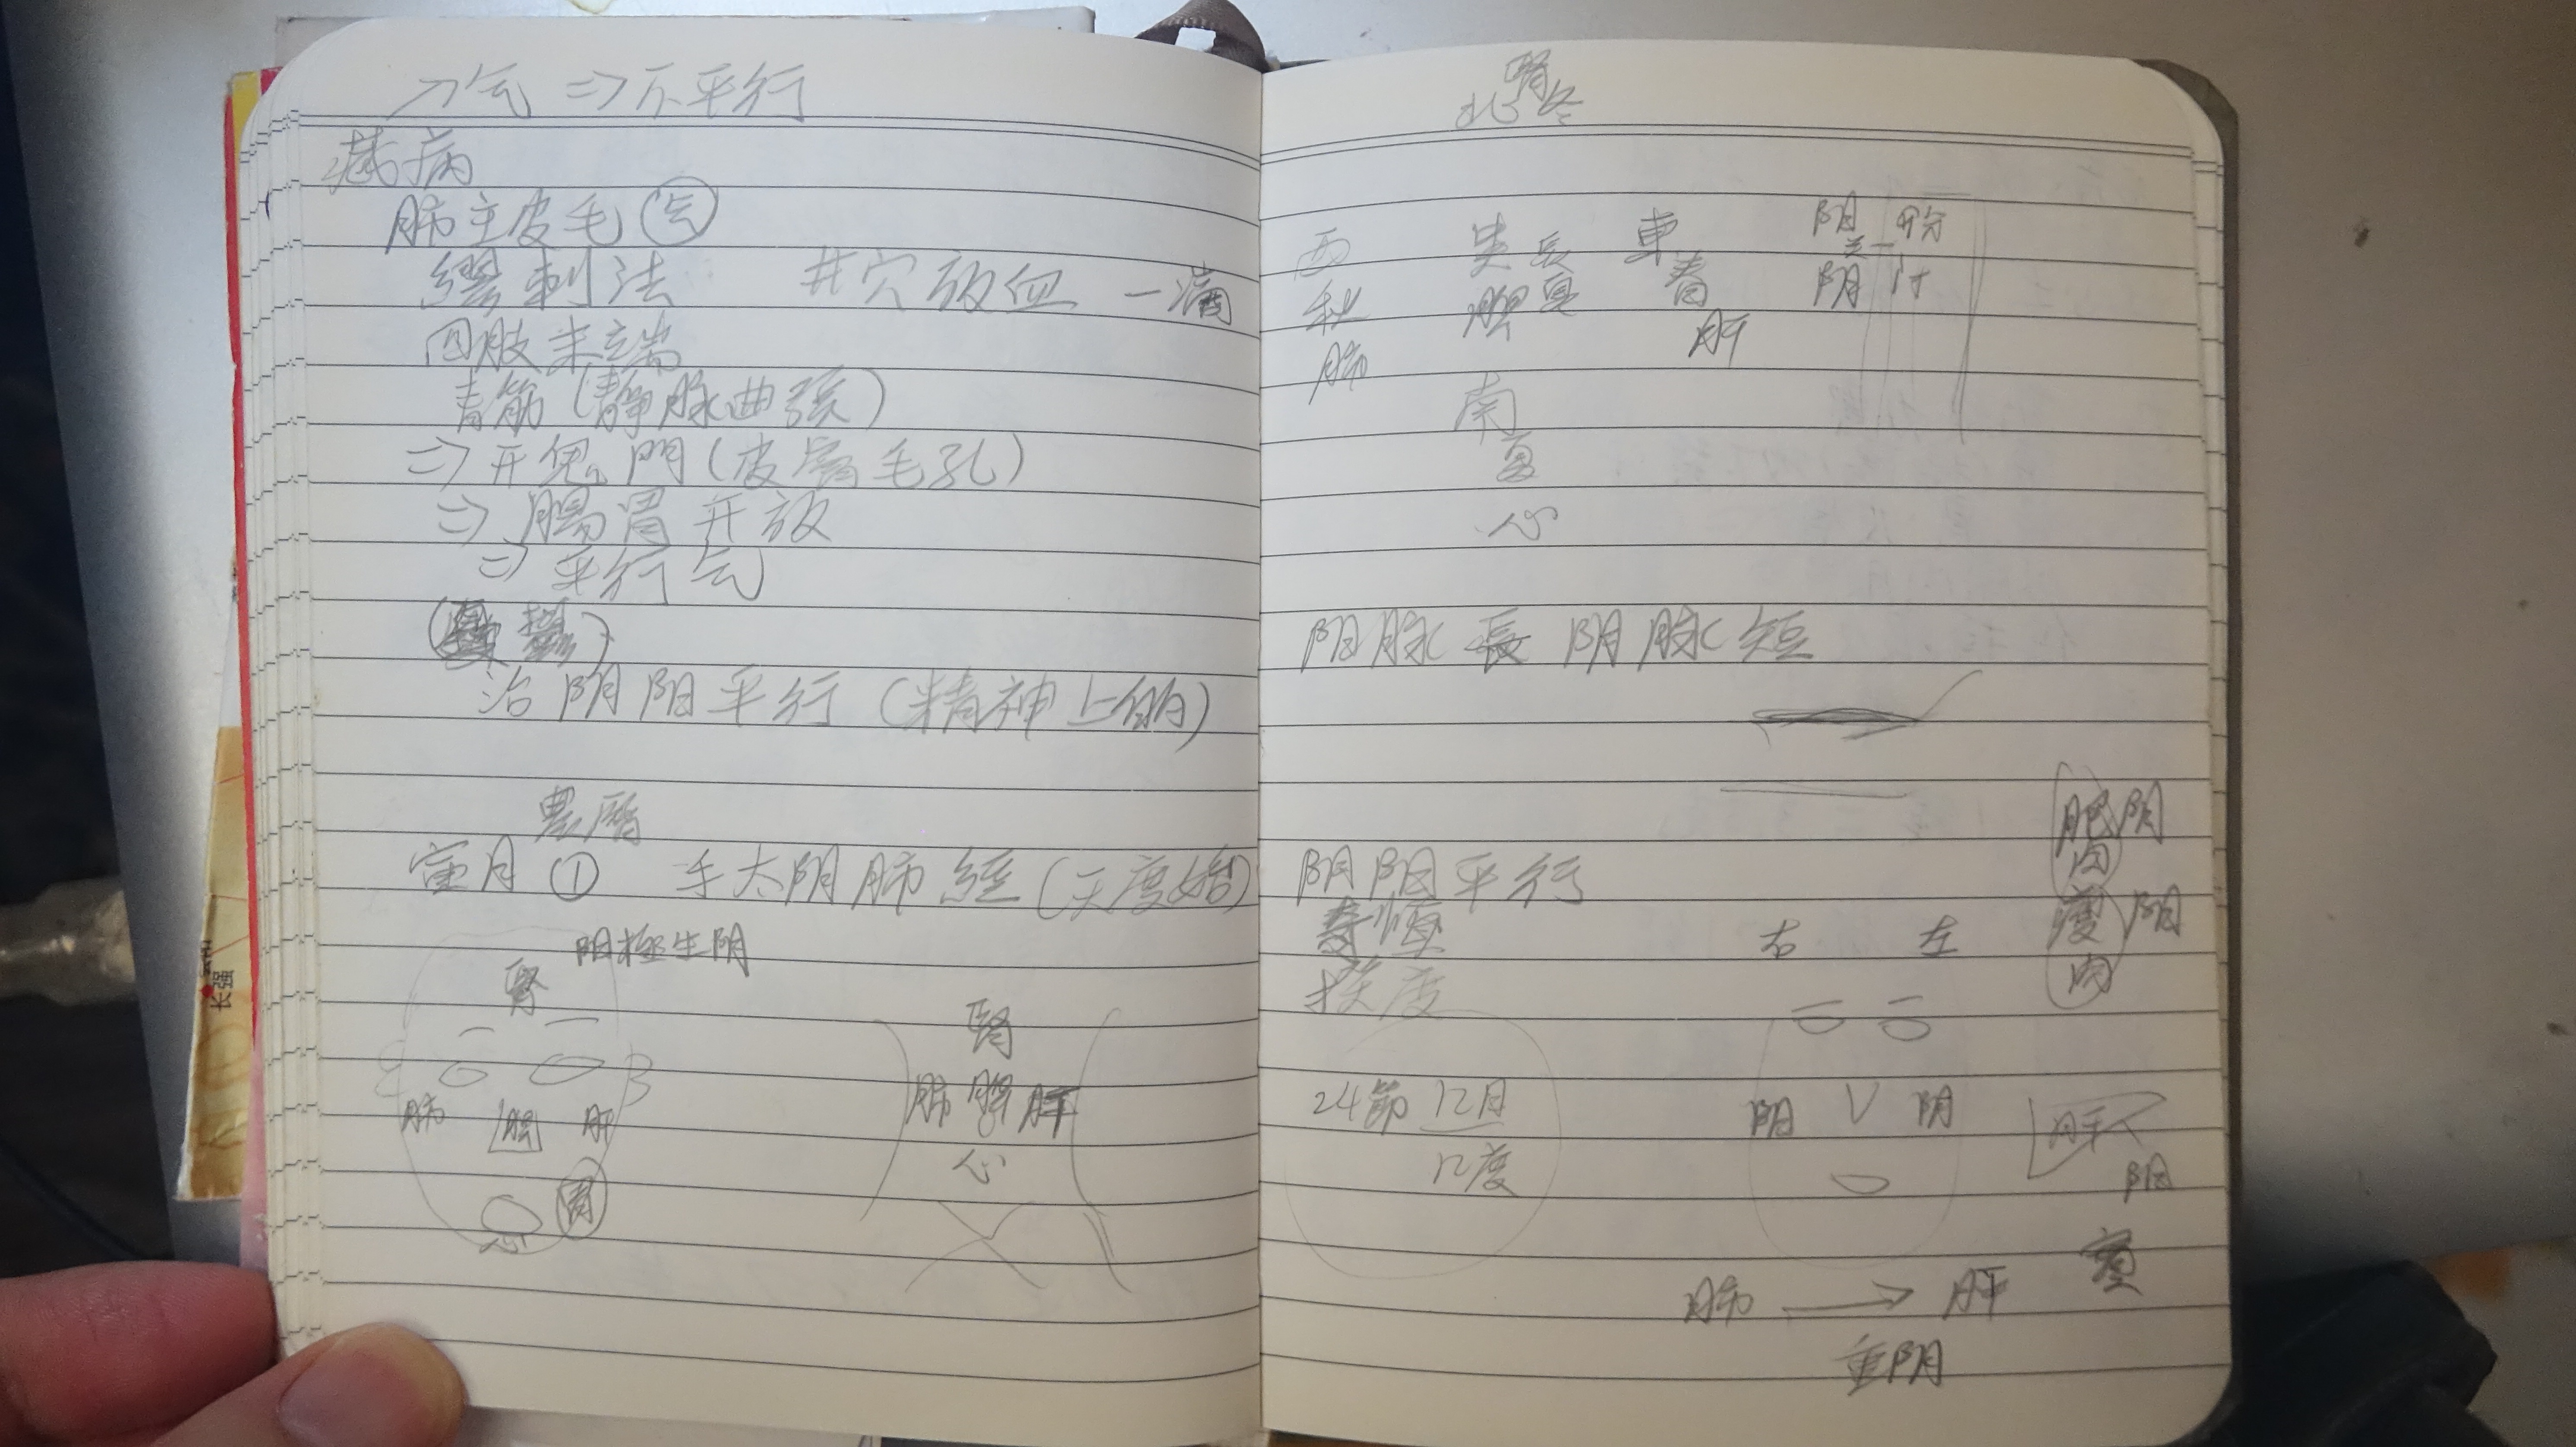 气 ⇒ 不平行
藏病
肺主皮毛 气
繆刺法 井穴放血 一滴
四肢末端
青筋(靜脉曲張)
⇒ 开鬼門(皮膚毛孔)
⇒ 腸胃开放
⇒ 平行气
治阴阳平行(精神上的)
農曆
寅月 ① 手太阴肺經(天度始)
阳極生阴
腎
肺 脾 肝
胃
心
腎
肺 脾 肝
心
長强
腎
北 冬
西 東
秋 脾 夏 春
肺 肝
南
夏
心
阳 分
阴 寸
阳脉長 阴脉短
肥肉 阴
瘦肉 阳
阴阳平行
奇恆
揆度
右 左
24節 12月
12度
阴 阳
肝
阳
肺 → 肝
重阴